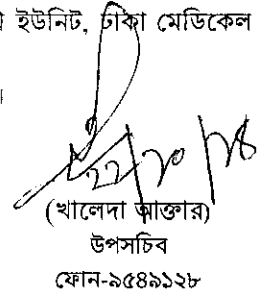 ইউনিট, ঢাকা মেডিকেল
(খালেদা আক্তার)
উপসচিব
ফোন-৯৫৪৯১২৮